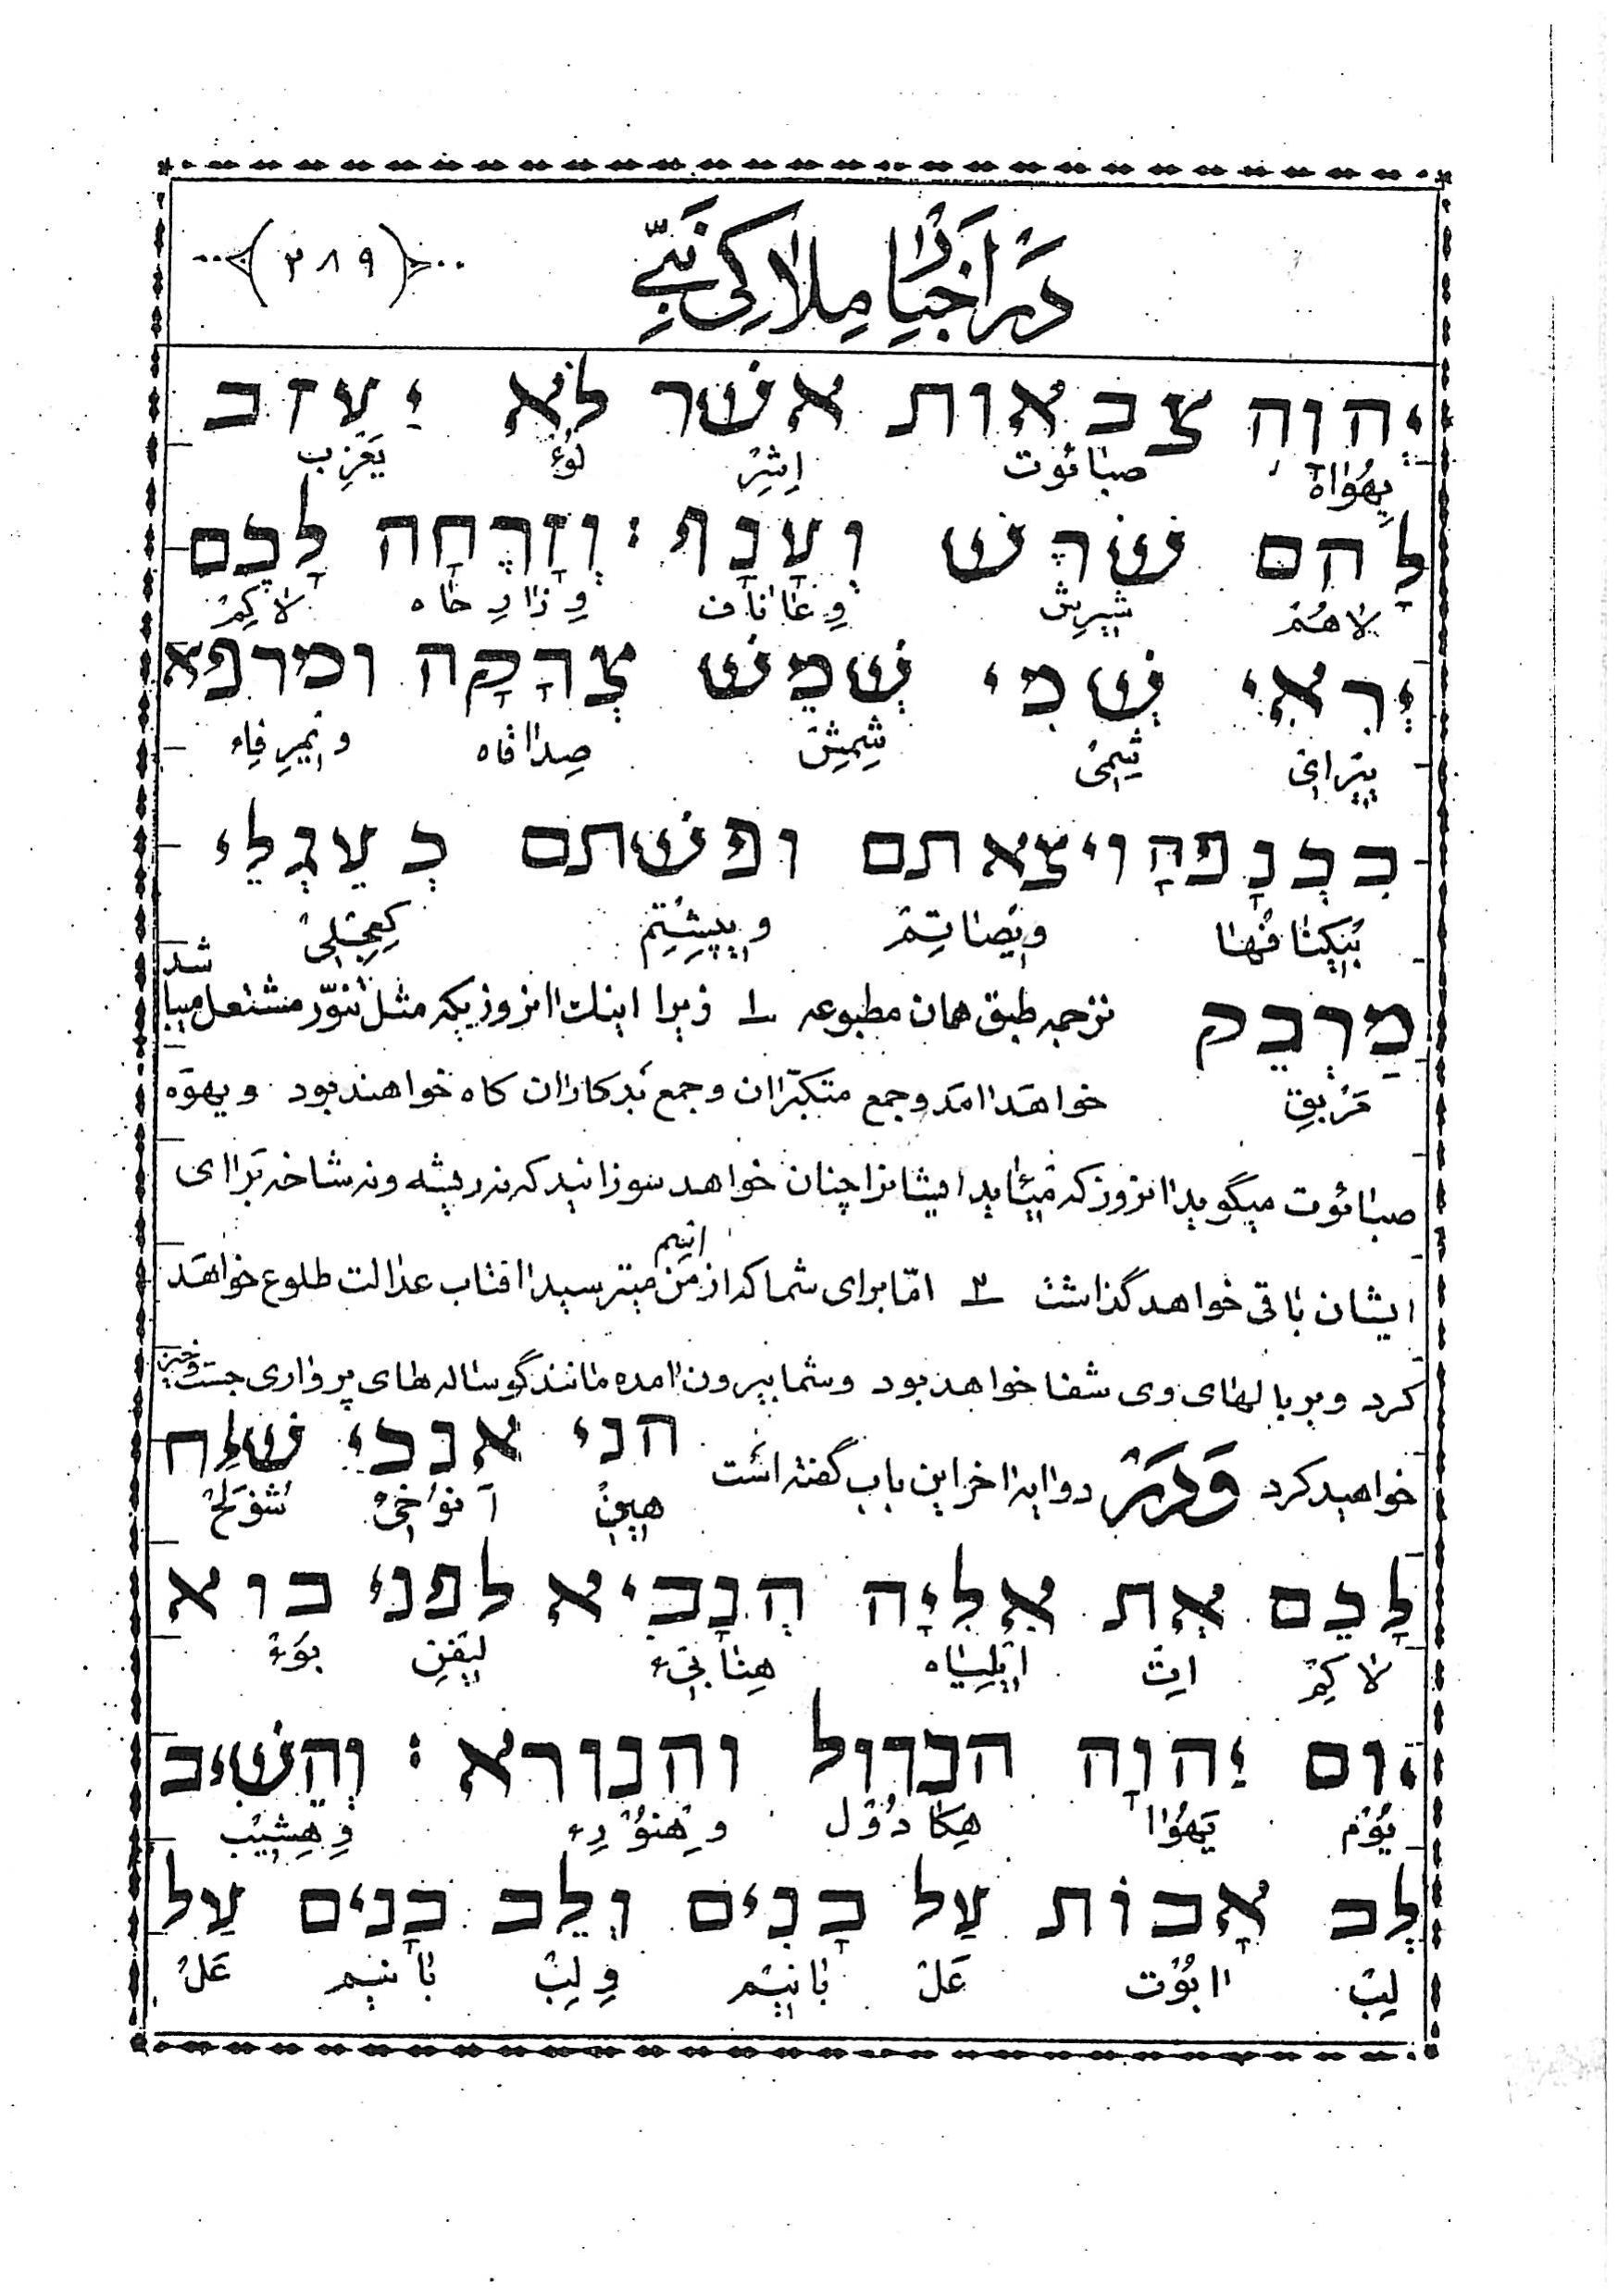 در اخبار ملاکی نبی
(۲۸۹)
יְהוָה צבאות אשר לא יַעזב
یِهُوٰاهْ صبٰائوت اِشِرْ لُوءْ یَعْزِب
לָהם שׁרֶשׁ וְעָנָף : וְזָרְחָה לָכֶם
لاهُمْ شِرِش وِعٰانٰاف وِذٰارِحٰاه لاکِمْ
יִרְאֵי שְׁמִי שֶׁמֶשׁ צְדָקָה ומרפא
یِرْایٖ شِمیٖ شِمِشْ صِدٰاقٰاه ومِرفِاء
בִּכְנָפֶהָ ויצאתם ופשתם כְּעֶגְלֵי
بیٖکِنٰافُهٰا ویٖصٰاتِمْ وپیٖشِتِم کِعِجْلیٖ
שد
מַרְבֵּק ترجمه طبق همان مطبوعه ۱ زیرا اینک انروزیکه مثل تنوّر مشتعل میبا
مَرْبِق خواهد امد و جمع متکبّران و جمع بدکاران کاه خواهند بود و یهوه
صبٰائوت میگوید انروز که میٖاید ایشانرا چنان خواهد سوزانید که نه ریشه و نه شاخه برای
ایشان باقی خواهد گذاشت ۲ امّا برای شما که از اسم من میترسید افتاب عدالت طلوع خواهد
کرد و بر بالهای وی شفا خواهد بود و شما بیرون امده مانند گوساله های پرواری جست وخیز
خواهید کرد وَدَرْ دو ایه اخر این باب گفته است הני אנכי שׁלֵח
هیٖنیٖ آنوُخیٖ شوُلَحْ
לָכֶם אֶת אֵלִיָה הנָבִיא לפני בוא
لاکِمْ اِث ایٖلِیٰاه هِنٰابیٖء لیٖفِنی بوُءْ
יום יַהוָה הגדול והנורא : וְהֵשִׁיב
یوُمْ یَهُوٰا هِکٰادُوُل وهَنوُرِء وِهِشیٖبْ
לֵב אָבות עַל בָּנִים וְלֵב בָּנים עַל
لِبْ اابُوُت عَلْ بٰانیٖمْ وِلِبْ بٰانیم عَلْ